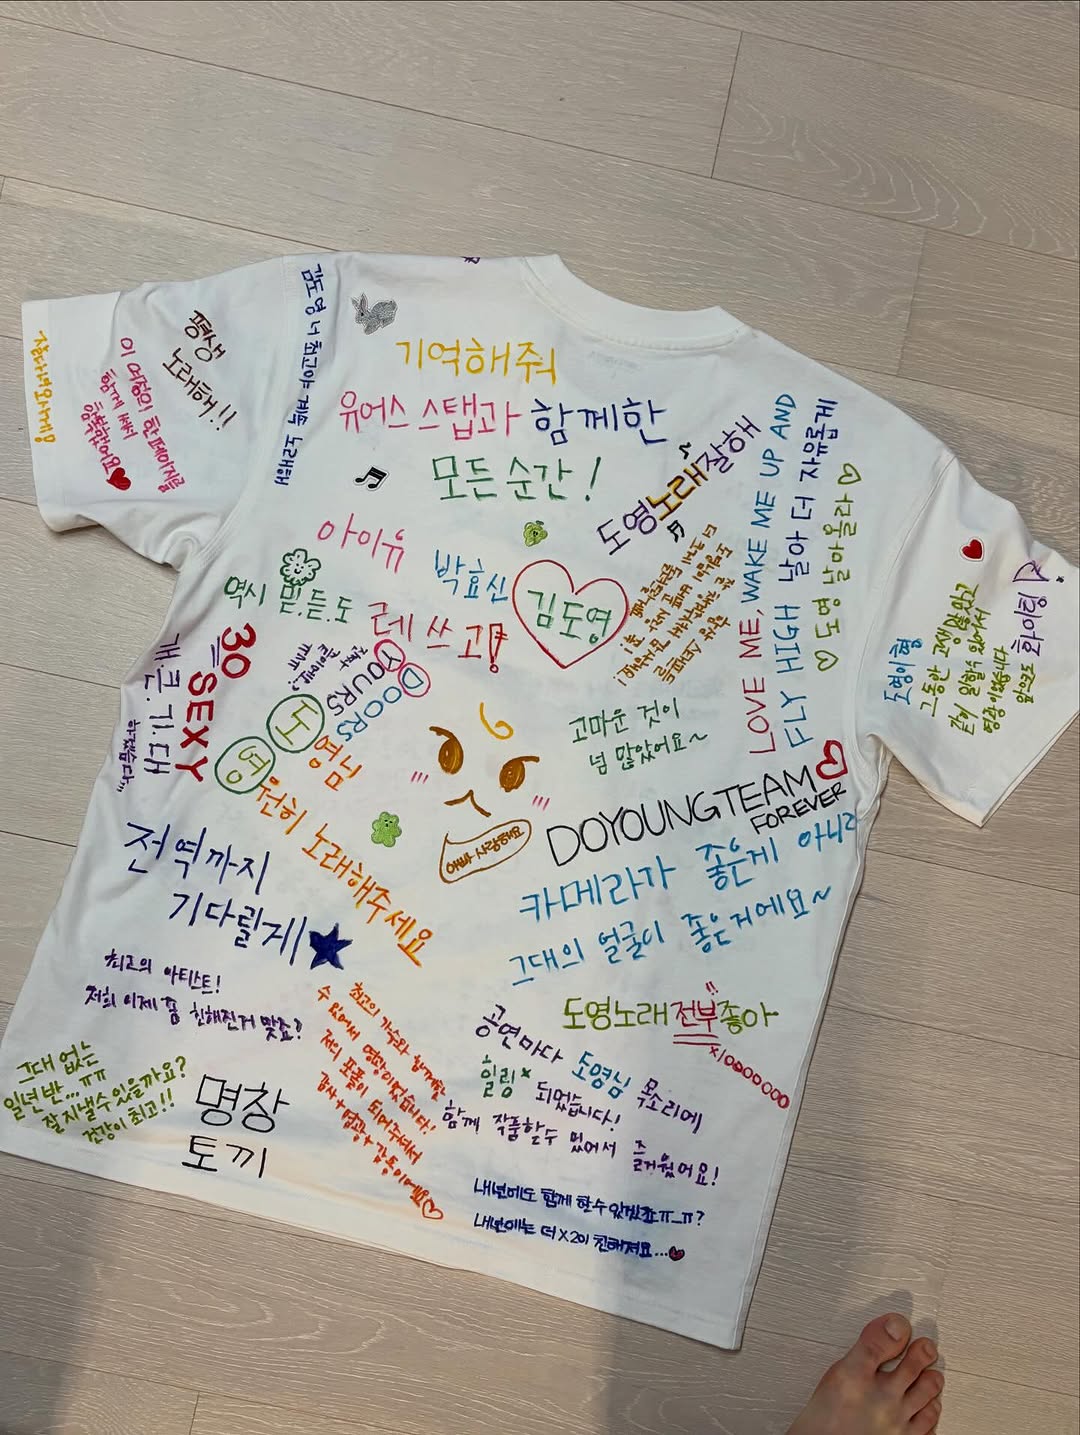 잘하셨어요사세용
이 여정의 한 페이지를
함께 써서
행복했어요
평생
노래해!!
김도영 너 최고야 계속 노래해
기억해줘
유어스 스탭과 함께한
모든 순간!
도영노래잘해
아이유
박효신
김도영
역시 믿.듣.도
레쓰고!
LOVE ME, WAKE ME UP AND
FLY HIGH 날아 더 자유롭게
30
SEXY
개.큰.기.대
하겠습니다...
YOURS
DOORS
도영님
영원히 노래해주세요
고마운 것이
넘 많았어요~
DOYOUNG TEAM
FOREVER
사랑해요
카메라가 좋은게 아니라
그대의 얼굴이 좋은거에요~
전역까지
기다릴게
최고의 아티스트!
저희 이제 좀 친해진거 맞죠?
그대 없는
일년 반... ㅠㅠ
잘 지낼 수 있을까요?
건강이 최고!!
명창
토끼
최고의 가수와 함께할
수 있어서 영광이었습니다!
저의 포폴이 되어주셔서
감사+영광+감동이에요
도영노래전부좋아
x10000000
공연마다 도영님 목소리에
힐링 되었습니다!
함께 작품할 수 있어서 즐거웠어요!
내년에도 함께 할 수 있겠죠ㅠ_ㅠ?
내년에는 더 x2이 친해져요...
도영이형
그동안 고생 많았고
같이 일할 수 있어서
영광이었습니다
앞으로도 화이팅